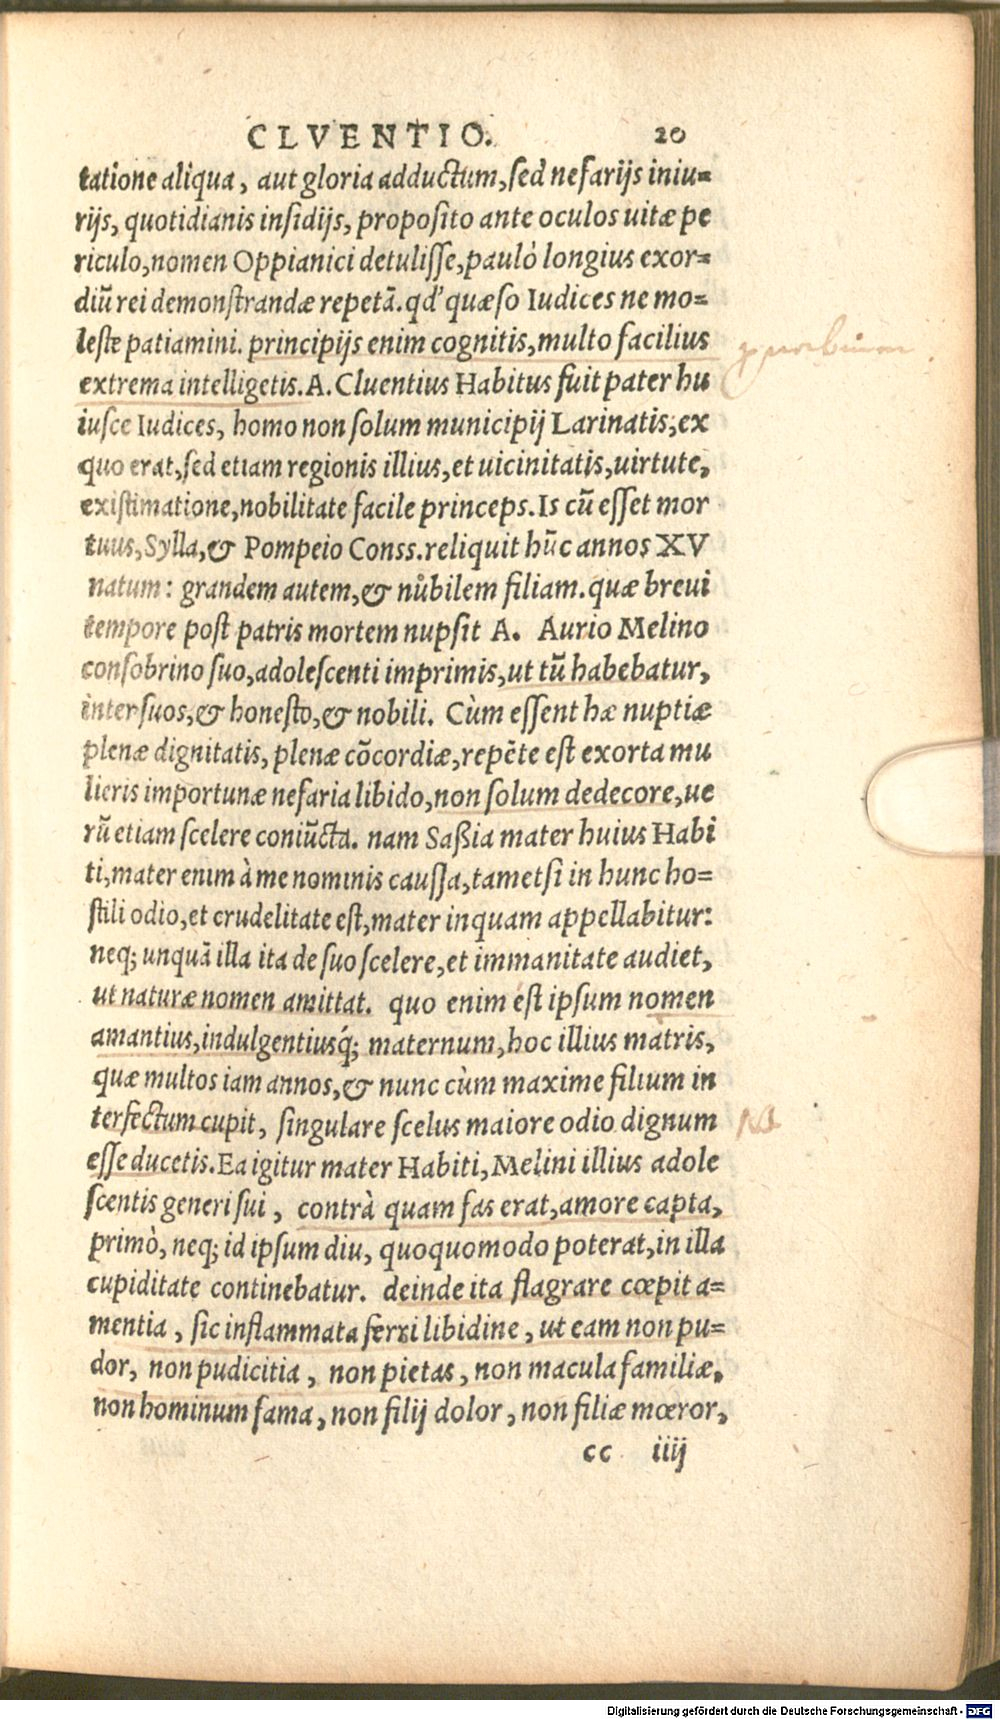 CLVENTIO. 20
tatione aliqua, aut gloria adductum, sed nefarijs iniu=
rijs, quotidianis insidijs, proposito ante oculos uitæ pe
riculo, nomen Oppianici detulisse, paulò longius exor=
diũ rei demonstrandæ repetã. qd' quæso Iudices ne mo=
leste patiamini. principijs enim cognitis, multo facilius
extrema intelligetis. A. Cluentius Habitus fuit pater hu
iusce Iudices, homo non solum municipij Larinatis, ex
quo erat, sed etiam regionis illius, et uicinitatis, uirtute,
existimatione, nobilitate facile princeps. Is cũ esset mor
tuus, Sylla, & Pompeio Conss. reliquit hũc annos XV
natum: grandem autem, & nubilem filiam. quæ breui
tempore post patris mortem nupsit A. Aurio Melino
consobrino suo, adolescenti imprimis, ut tũ habebatur,
inter suos, & honesto, & nobili. Cùm essent hæ nuptiæ
plenæ dignitatis, plenæ cõcordiæ, repẽte est exorta mu
lieris importunæ nefaria libido, non solum dedecore, ue
rũ etiam scelere coniũcta. nam Saßia mater huius Habi
ti, mater enim à me nominis caussa, tametsi in hunc ho=
stili odio, et crudelitate est, mater inquam appellabitur:
neq; unquã illa ita de suo scelere, et immanitate audiet,
ut naturæ nomen amittat. quo enim est ipsum nomen
amantius, indulgentiusq́; maternum, hoc illius matris,
quæ multos iam annos, & nunc cùm maxime filium in
terfectum cupit, singulare scelus maiore odio dignum
esse ducetis. Ea igitur mater Habiti, Melini illius adole
scentis generi sui, contrà quam fas erat, amore capta,
primò, neq; id ipsum diu, quoquomodo poterat, in illa
cupiditate continebatur. deinde ita flagrare cœpit a=
mentia, sic inflammata ferri libidine, ut eam non pu=
dor, non pudicitia, non pietas, non macula familiæ,
non hominum fama, non filij dolor, non filiæ mœror,
cc iiij
NB
Digitalisierung gefördert durch die Deutsche Forschungsgemeinschaft - DFG